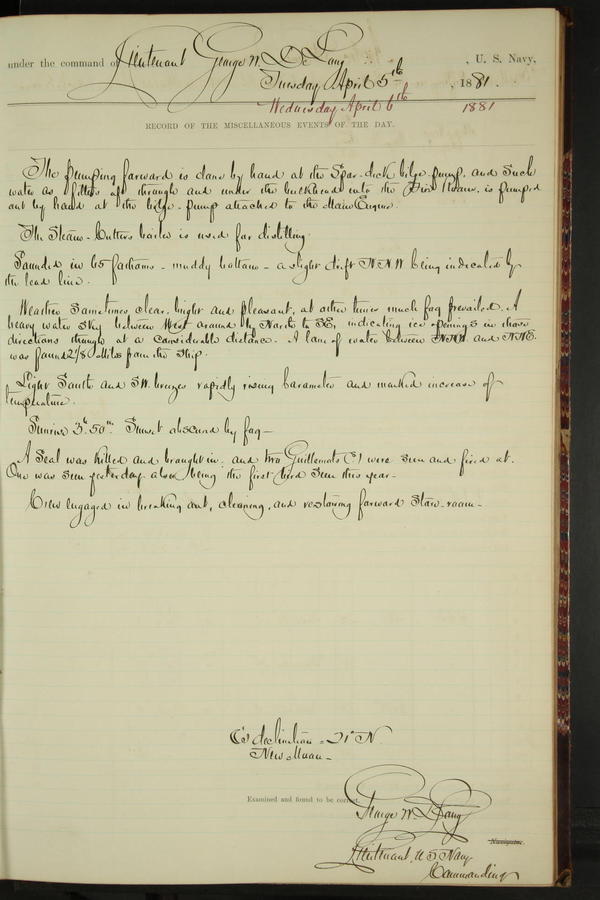 under the command of Lieutenant George W. De Long, U. S. Navy,
Tuesday April 5th, 1881.
Wednesday April 6th 1881
RECORD OF THE MISCELLANEOUS EVENTS OF THE DAY.
The pumping forward is done by hand at the Spar-deck bilge pump, and such
water as filters aft through and under the bulkhead into the Fire Room, is pumped
out by hand at the bilge-pump attached to the Main Engine.
The Steam-Cutters boiler is used for distilling.
Sounded in 65 fathoms - muddy bottom - a slight drift N.N.W. being indicated by
the lead line.
Weather sometimes clear, bright and pleasant, at other times much fog prevailed. A
heavy water sky between West around by North to SE, indicating ice openings in those
directions though at a considerable distance. A lane of water between NNW and NNE.
was found 2 1/8 Miles from the ship.
Light South and SW. breezes rapidly rising barometer and marked increase of
temperature.
Sunrise 3h. 50m. Sunset obscured by fog -
A seal was killed and brought in; and two Guillemots (?) were seen and fired at.
One was seen yesterday also, being the first bird seen this year -
Crew engaged in breaking out, cleaning, and restowing forward store-room -
declination = 21° N.
New Moon -
Examined and found to be correct.
George W. De Long
Navigator.
Lieutenant, U S Navy
Commanding